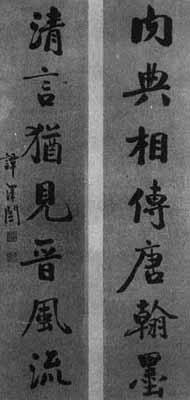 内典相傳唐翰墨
清言猶見晉風流
譚澤闓